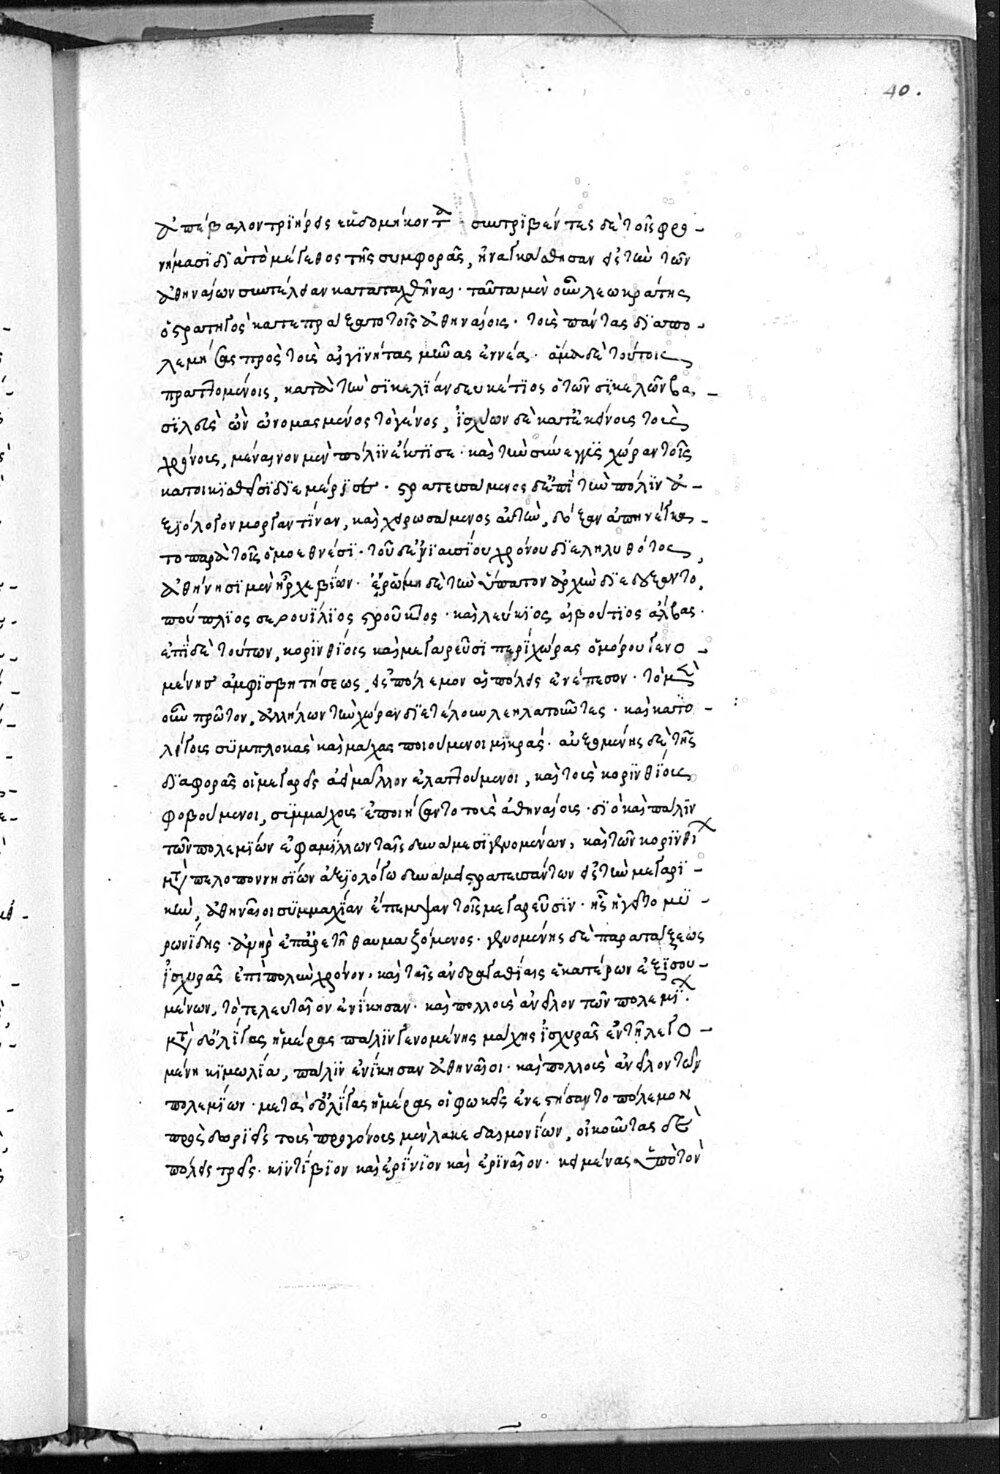 40.
ἀπέβαλον τριήρεις ἑβδομήκοντα. συντριβέντες δὲ τοῖς φρο-
νήμασι διὰ τὸ μέγεθος τῆς συμφορᾶς, ἠναγκάσθησαν εἰς τὴν τῶν
ἀθηναίων συντέλειαν καταταχθῆναι. ταῦτα μὲν οὖν λεωκράτης
ὁ στρατηγὸς κατεπράξατο τοῖς ἀθηναίοις. τοὺς πάντας διαπο-
λεμήσας πρὸς τοὺς αἰγινήτας μῆνας ἐννέα. ἅμα δὲ τούτοις
πραττομένοις, κατὰ τὴν σικελίαν δευκέτιος ὁ τῶν σικελῶν βα-
σιλεὺς ὢν ὠνομασμένος τὸ γένος, ἰσχύων δὲ κατ' ἐκείνους τοὺς
χρόνους, μέναινον μὲν πόλιν ἔκτισε. καὶ τὴν σύνεγγυς χώραν τοῖς
κατοικισθεῖσι διεμέρισε. στρατευσάμενος δ' ἐπὶ τὴν πόλιν ἀ-
ξιόλογον μοργαντίναν, καὶ χειρωσάμενος αὐτὴν, δόξαν ἀπηνέγκα-
το παρὰ τοῖς ὁμοεθνέσι. τοῦ δ' ἐνιαυσίου χρόνου διεληλυθότος,
ἀθήνησι μὲν ἦρχε βίων. ἐν ῥώμῃ δὲ τὴν ὕπατον ἀρχὴν διεδέξαντο,
πούπλιος σερουίλιος στροῦκτος. καὶ λεύκιος αἰβούτιος ἄλβας.
ἐπὶ δὲ τούτων, κορινθίοις καὶ μεγαρεῦσι περὶ χώρας ὁμόρου γενο-
μένης ἀμφισβητήσεως, εἰς πόλεμον αἱ πόλεις ἐνέπεσον. τὸ μὲν
οὖν πρῶτον, ἀλλήλων τὴν χώραν διετέλουν λεηλατοῦντες. καὶ κατ' ὀ-
λίγους συμπλοκὰς καὶ μάχας ποιούμενοι μικράς. αὐξομένης δὲ τῆς
διαφορᾶς οἱ μεγαρεῖς ἀεὶ μᾶλλον ἐλαττούμενοι, καὶ τοὺς κορινθίους
φοβούμενοι, συμμάχους ἐποιήσαντο τοὺς ἀθηναίους. διὸ καὶ πάλιν
τῶν πολεμίων ἐφαμίλλων ταῖς δυνάμεσι γενομένων, καὶ τῶν κορινθίων
μετὰ πελοποννησίων ἀξιολόγῳ δυνάμει στρατευσάντων εἰς τὴν μεγαρι-
κὴν, ἀθηναῖοι συμμαχίαν ἔπεμψαν τοῖς μεγαρεῦσιν. ἧς ἡγεῖτο μυ-
ρωνίδης. ἀνὴρ ἐπ' ἀρετῇ θαυμαζόμενος. γενομένης δὲ παρατάξεως
ἰσχυρᾶς ἐπὶ πολὺν χρόνον. καὶ ταῖς ἀνδραγαθίαις ἑκατέρων ἐξισου-
μένων, τὸ τελευταῖον ἐνίκησαν. καὶ πολλοὺς ἀνεῖλον τῶν πολεμίων.
μετὰ δ' ὀλίγας ἡμέρας πάλιν γενομένης μάχης ἰσχυρᾶς ἐν τῇ λεγο-
μένῃ κιμωλίᾳ, πάλιν ἐνίκησαν ἀθηναῖοι. καὶ πολλοὺς ἀνεῖλον τῶν
πολεμίων. μετὰ δ' ὀλίγας ἡμέρας οἱ φωκεῖς ἐνεστήσαντο πόλεμον
πρὸς δωριεῖς τοὺς προγόνους μὲν λακεδαιμονίων, οἰκοῦντας δὲ
πόλεις τρεῖς. κιντίβιον καὶ ἐρίνιον καὶ ἐριναῖον. κειμένας ὑπὸ τὸν